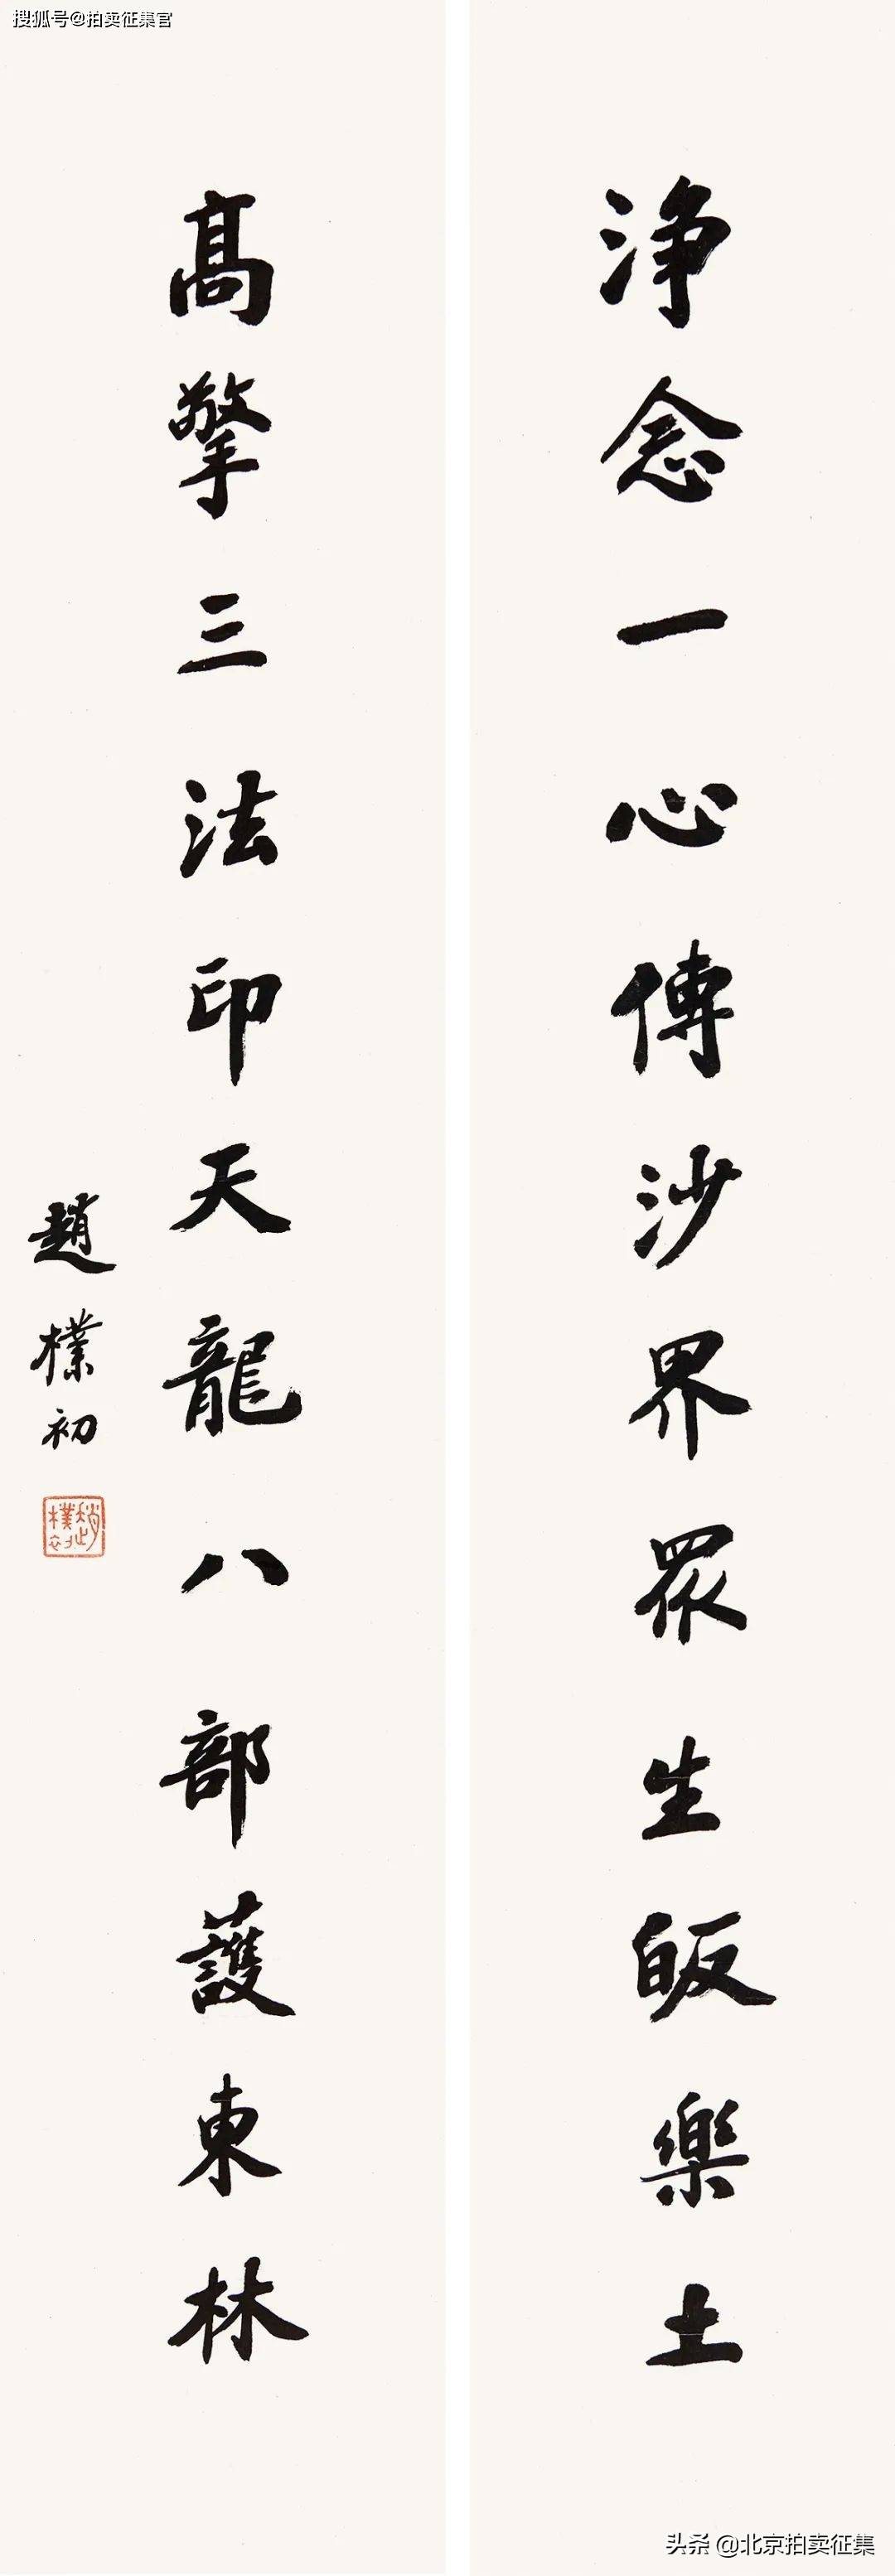 搜狐号@拍卖征集官
净念一心傳沙界眾生皈樂土
高擎三法印天龍八部護東林
趙樸初
趙樸初
头条 @北京拍卖征集